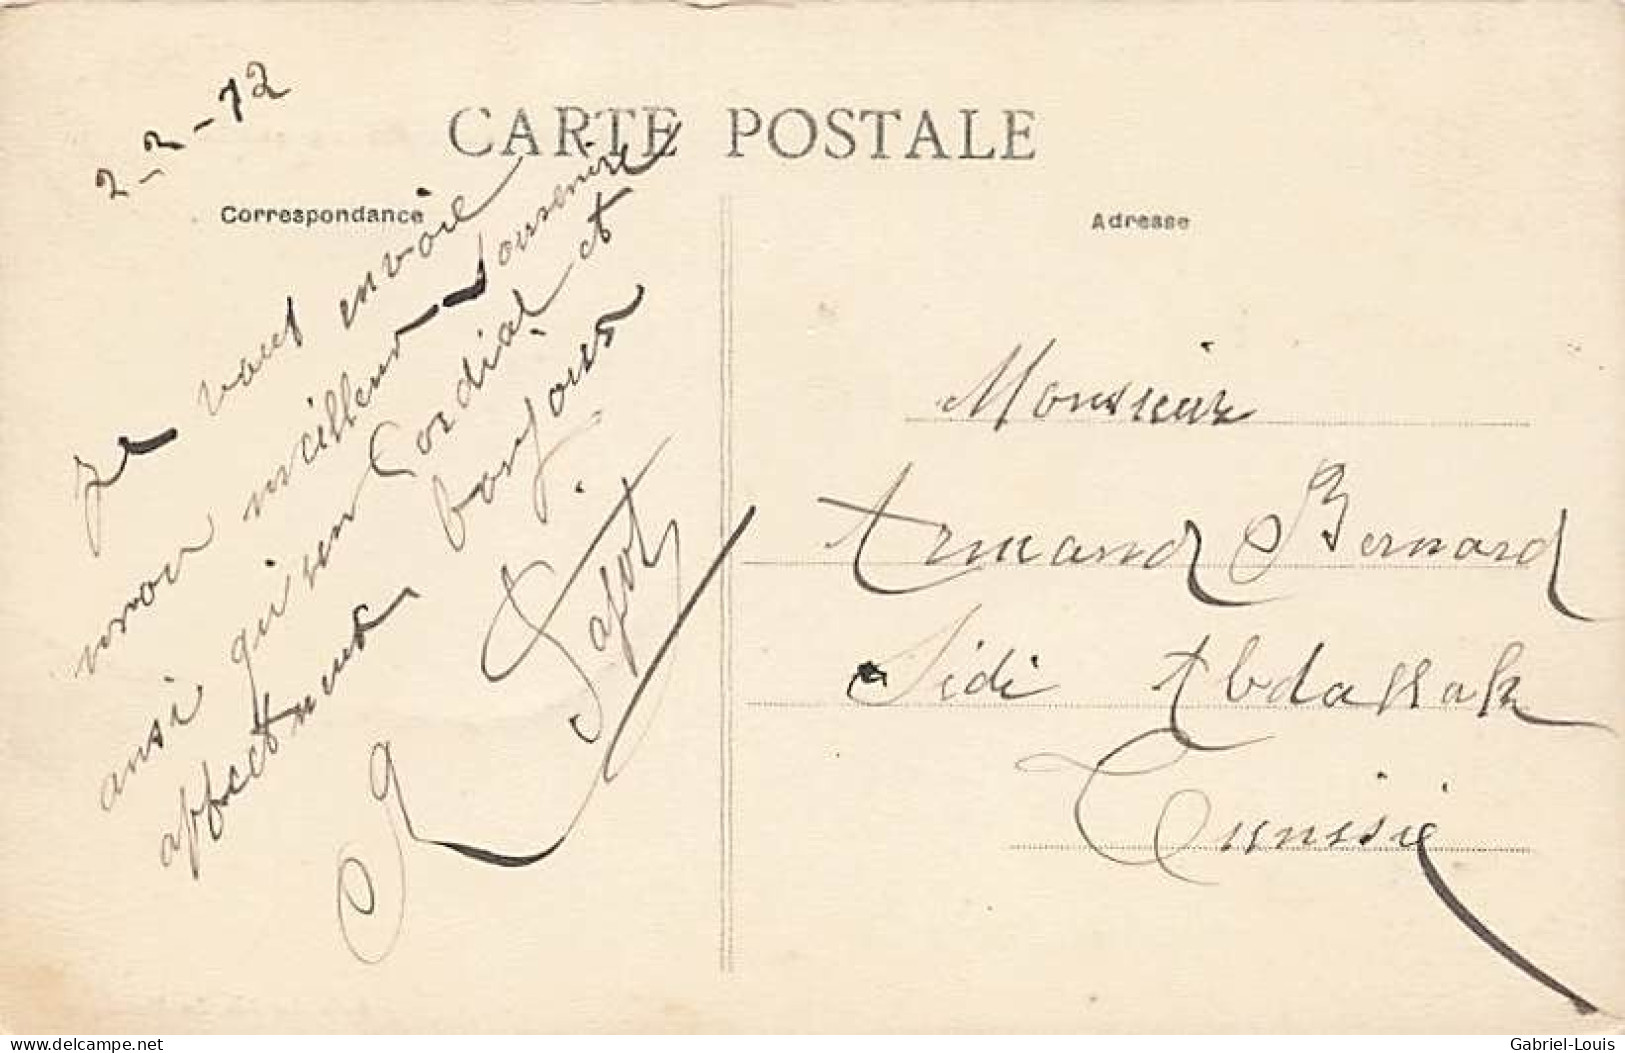 CARTE POSTALE
Correspondance
Adresse
2-2-12
Je vous envoie
mon meilleur souvenire
ansi qu'un Cordial et
affectueux bonjour
Pajot
Monsieur
Armand Bernard
Sidi Abdallah
Tunisie
delcampe.net
Gabriel-Louis